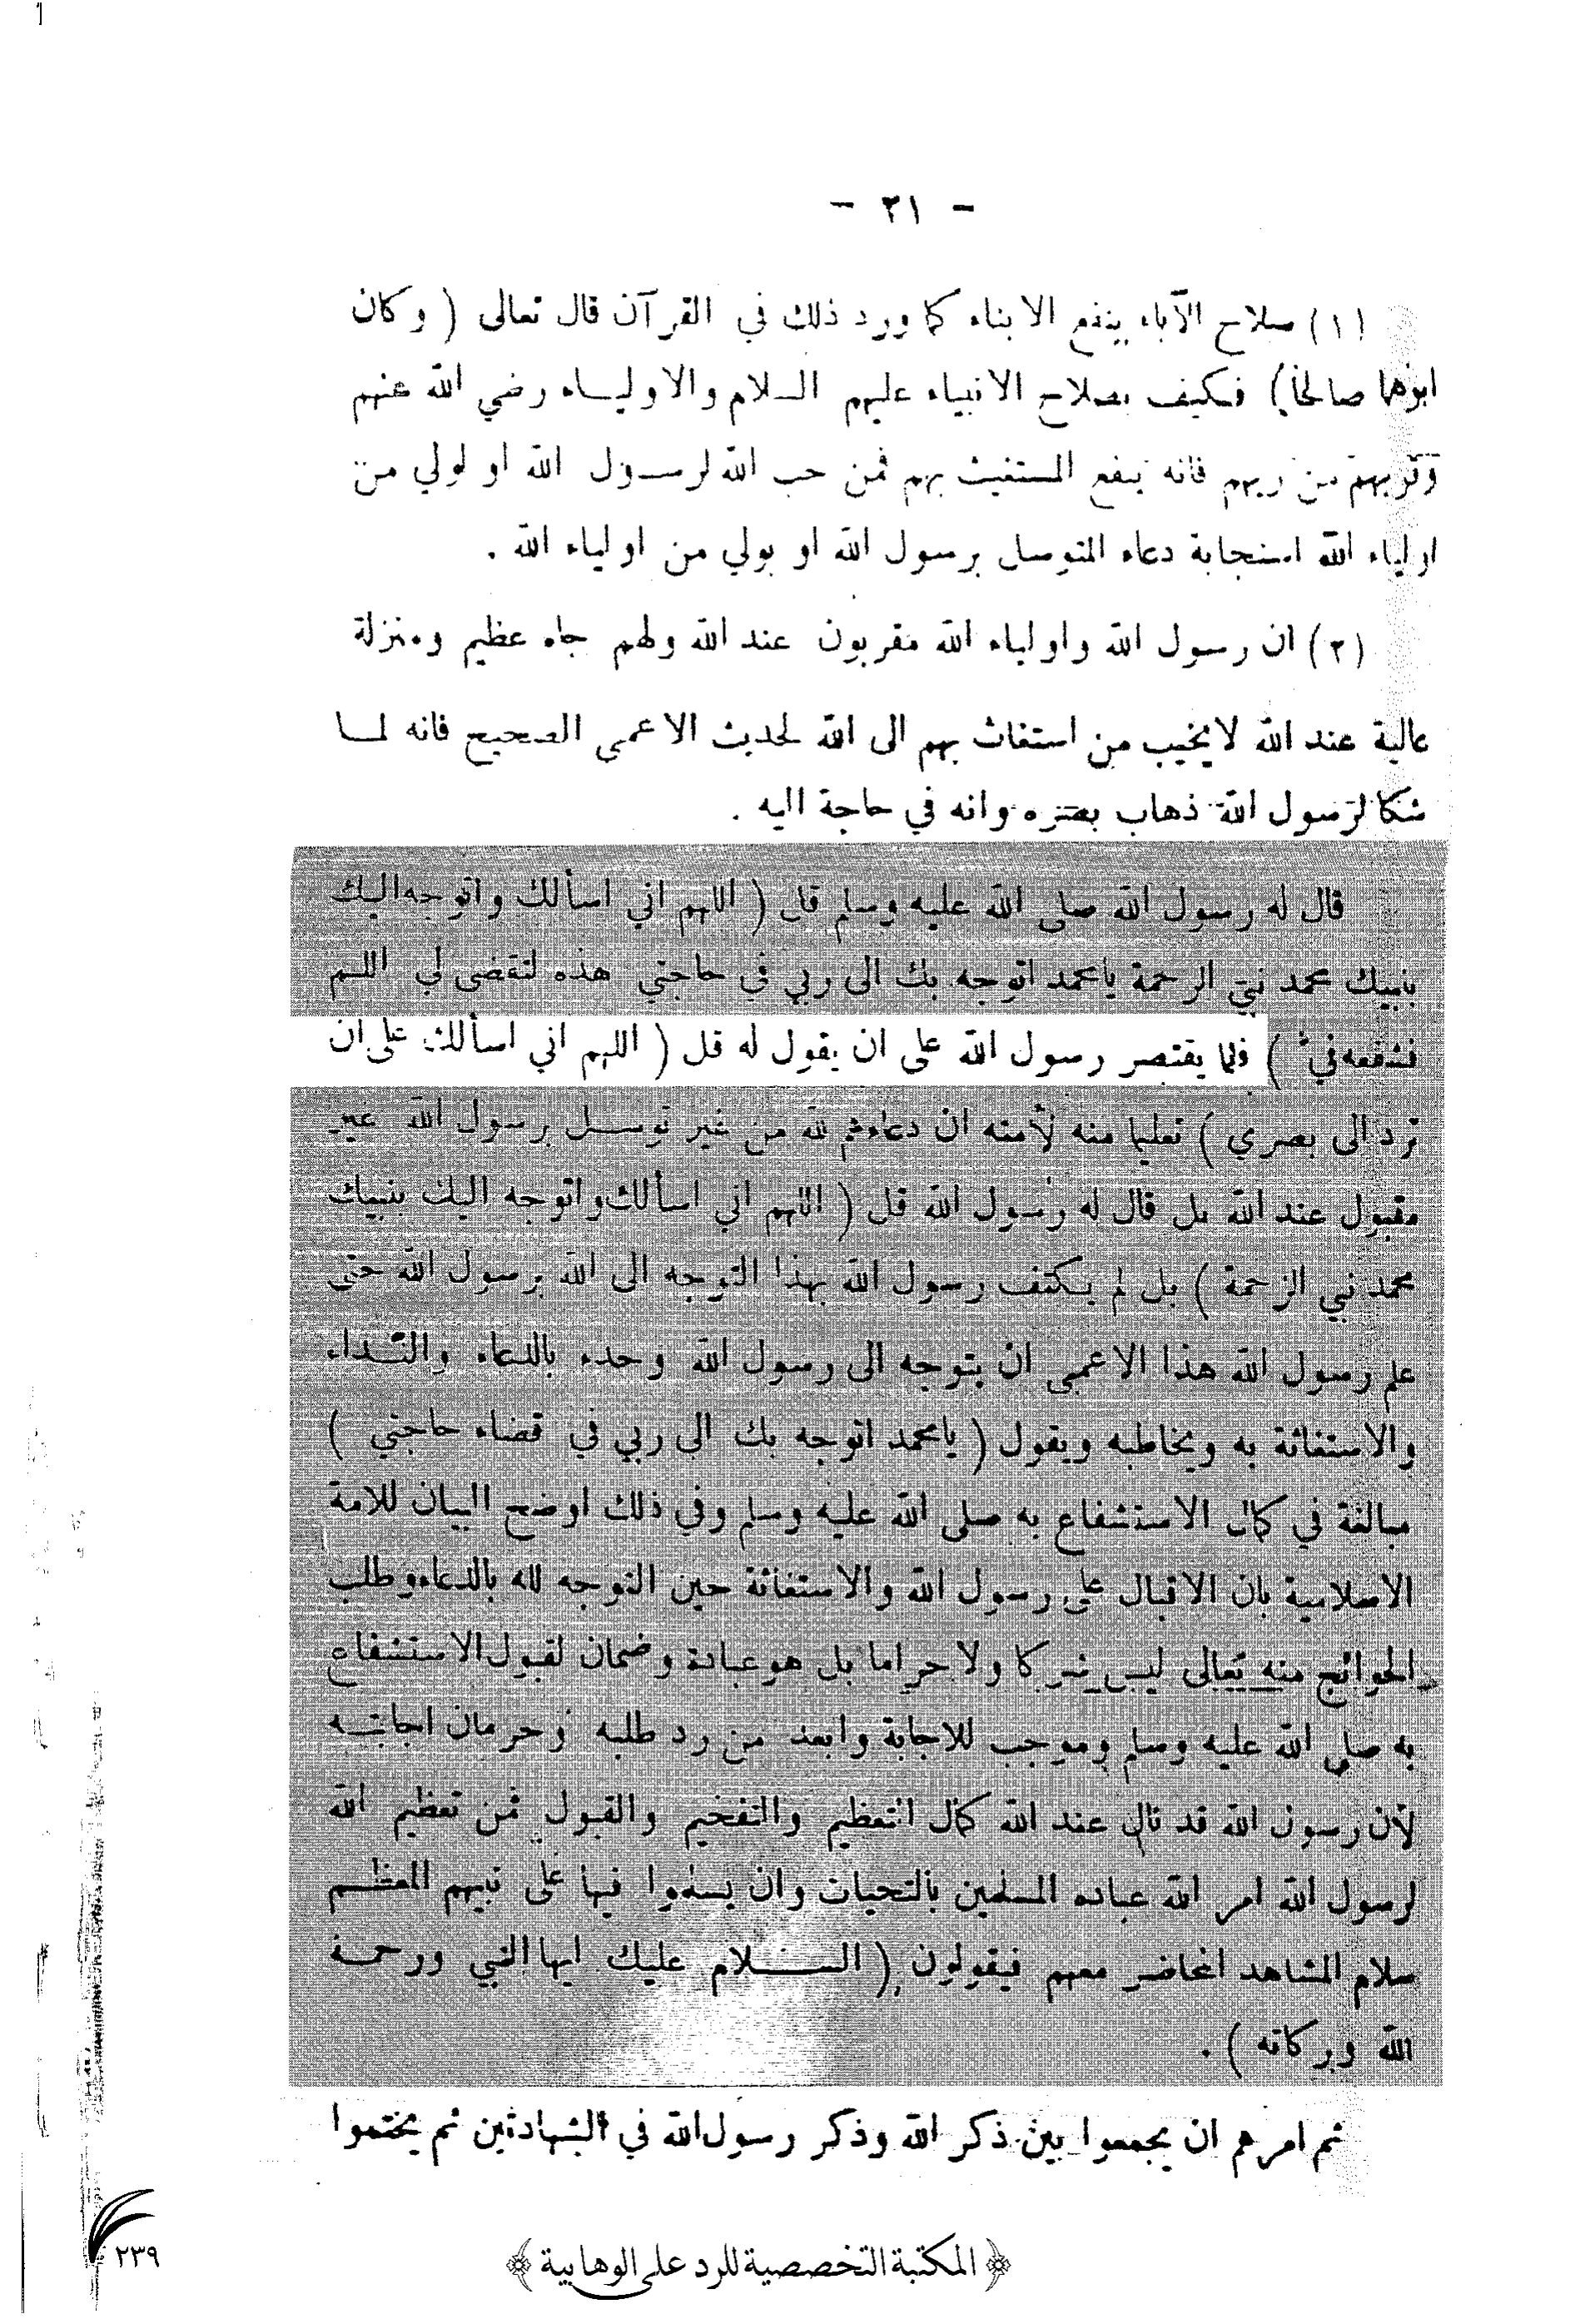 - ٢١ -
(١) صلاح الآباء ينفع الابناء كما ورد ذلك في القرآن قال تعالى ( وكان
ابوهما صالحاً) فكيف بصلاح الانبياء عليهم السلام والاوليـاء رضي الله عنهم
وقربهم من ربهم فانه ينفع المستغيث بهم فمن حب الله لرسول الله او لولي من
اولياء الله استجابة دعاء المتوسل برسول الله او بولي من اولياء الله .
(٢) ان رسول الله واولياء الله مقربون عند الله ولهم جاه عظيم ومنزلة
عالية عند الله لايخيب من استغاث بهم الى الله لحديث الاعمى الصحيح فانه لمـا
شكا لرسول الله ذهاب بصره وانه في حاجة اليه .
قال له رسول الله صلى الله عليه وسلم قل ( اللهم اني اسألك واتوجه اليك
بنبيك محمد نبي الرحمة يامحمد اتوجه بك الى ربي في حاجتي هذه لتقضى لي اللـم
فشفعه في ) فلما يقتصر رسول الله على ان يقول له قل ( اللهم اني اسألك على ان
ترد الى بصري ) تعليما منه لأمته ان دعاءهم لله من غير توسـل برسول الله غير
مقبول عند الله بل قال له رسول الله قل ( اللهم اني اسألك واتوجه اليك بنبيك
محمد نبي الرحمة ) بل لم يكتف رسول الله بهذا التوجه الى الله برسول الله حتى
علم رسول الله هذا الاعمى ان يتوجه الى رسول الله وحده بالدعاء والنـداء
والاستغاثة به ويخاطبه ويقول ( يامحمد اتوجه بك الى ربي في قضاء حاجتي )
مبالغة في كمال الاستشفاع به صلى الله عليه وسلم وفي ذلك اوضح البيان للامة
الاسلامية بان الاقبال على رسول الله والاستغاثة حين التوجه لله بالدعاء وطلب
الحوائج منه تعالى ليس شركا ولا حراما بل هو عبادة وضمان لقبول الاستشفاع
به صلى الله عليه وسلم وموجب للاجابة وابعد من رد طلبه وحرمان اجابتـه
لأن رسول الله قد نال عند الله كمال التعظيم والتفخيم والقبول فمن تعظيم الله
لرسول الله امر الله عباده المسلمين بالتحيات وان يسلموا فيها على نبيهم المعظـم
سلام المشاهد الحاضر معهم فيقولون ( السـلام عليك ايها النبي ورحمـة
الله وبركاته ) .
ثم امرهم ان يجمعوا بين ذكر الله وذكر رسول الله في الشهادتين ثم يختموا
المكتبة التخصصية للرد على الوهابية
٢٣٩